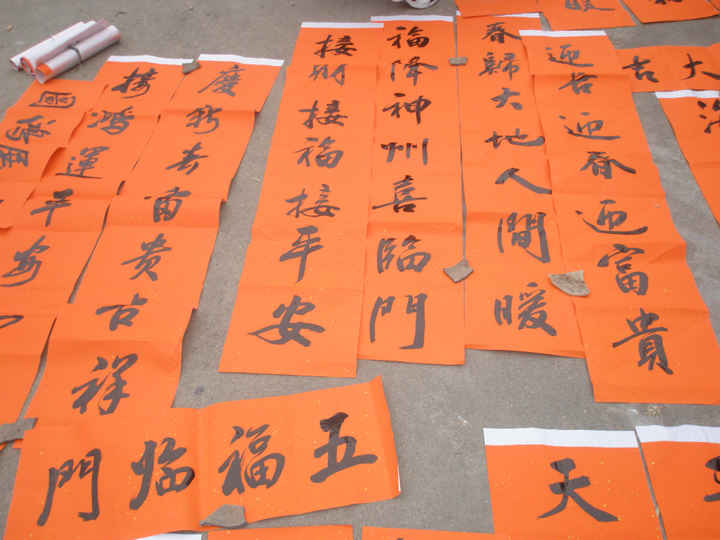 大吉
迎吉迎春迎富貴
春歸大地人間暖
福降神州喜臨門
接财接福接平安
慶新春富貴吉祥
接鴻運平安
五福临門
天